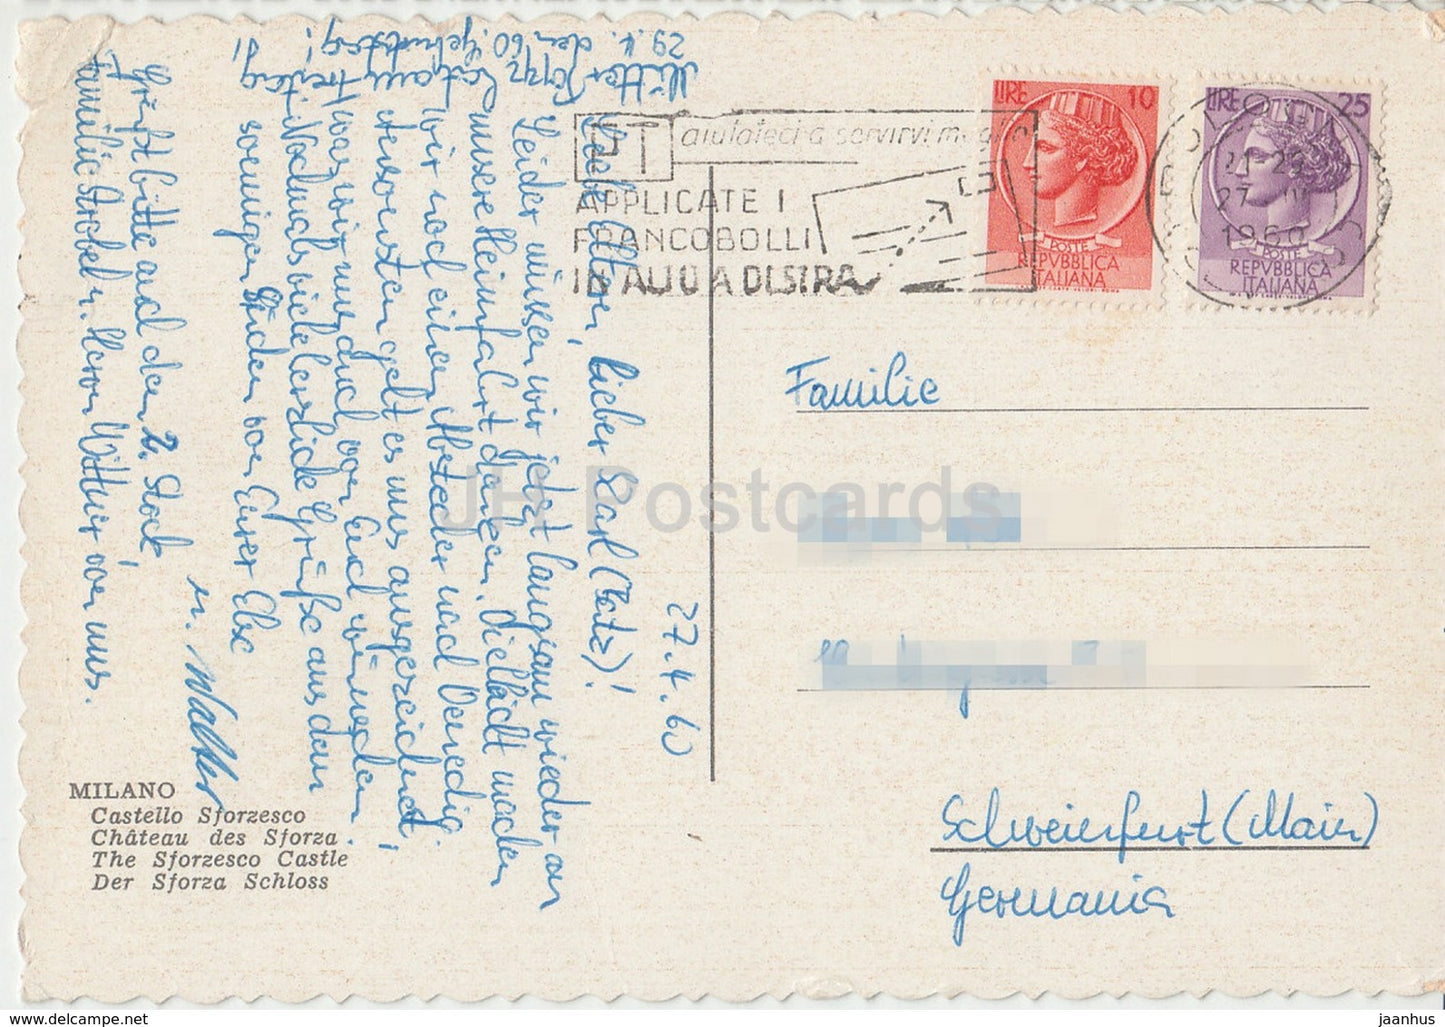 27.4.60
Liebe Eltern, lieber Karl (Betz)!
Leider müssen wir jetzt langsam wieder an
unsere Heimfahrt denken. Vielleicht machen
wir noch einen Abstecher nach Venedig.
Ansonsten geht es uns ausgezeichnet,
was wir uns auch von Euch wünschen.
Nochmals viele herzliche Grüße aus dem
sonnigen Süden von Eurer Else
u. Walter
Grüßt bitte auch den 2. Stock,
Familie Strobel u. Herrn Wittner von uns.
29.4. den 60. Geburtstag!
am Freitag
MILANO
Castello Sforzesco
Château des Sforza
The Sforzesco Castle
Der Sforza Schloss
aiutateci a servirvi meglio
APPLICATE I
FRANCOBOLLI
IN ALTO A DESTRA
LIRE 10
POSTE
REPVBBLICA
ITALIANA
LIRE 25
POSTE
REPVBBLICA
ITALIANA
21-29
27 IV
1960
Familie
Schweinfurt (Main)
Germania
JH Postcards
www.delcampe.net
jaanhm_us